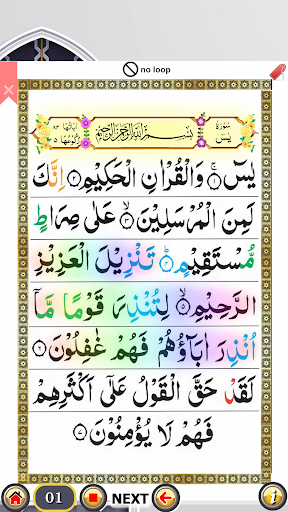 no loop
سُوْرَةُ يٰسٓ
بِسْمِ اللّٰهِ الرَّحْمٰنِ الرَّحِيْمِ
اٰيَاتُهَا ٨٣
رُكُوْعُهَا ٥
يٰسٓ ۝١ وَالْقُرْاٰنِ الْحَكِيْمِ ۝٢ اِنَّكَ
لَمِنَ الْمُرْسَلِيْنَ ۝٣ عَلٰى صِرَاطٍ
مُّسْتَقِيْمٍ ۝٤ تَنْزِيْلَ الْعَزِيْزِ
الرَّحِيْمِ ۝٥ لِتُنْذِرَ قَوْمًا مَّاۤ
اُنْذِرَ اٰبَآؤُهُمْ فَهُمْ غٰفِلُوْنَ ۝٦
لَقَدْ حَقَّ الْقَوْلُ عَلٰٓى اَكْثَرِهِمْ
فَهُمْ لَا يُؤْمِنُوْنَ ۝٧
01 NEXT